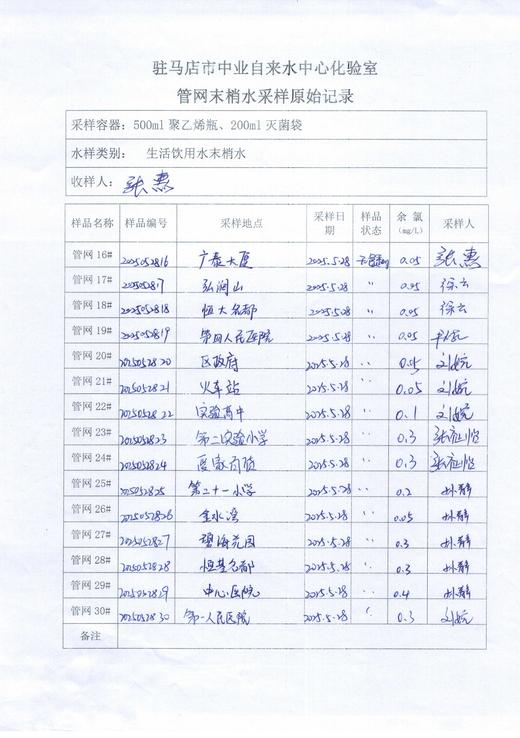 驻马店市中业自来水中心化验室
管网末梢水采样原始记录
采样容器：500ml 聚乙烯瓶、200ml 灭菌袋
水样类别： 生活饮用水末梢水
收样人：张惠
样品名称 样品编号 采样地点 采样日期 样品状态 余氯(mg/L) 采样人
管网 16# 2025052816 广泰大厦 2025.5.28 0.05 张惠
管网 17# 弘润山 2025.5.28 〃 0.05 徐云
管网 18# 2025052818 恒大名都 2025.5.28 〃 0.05 徐云
管网 19# 2025052819 第四人民医院 2025.5.28 〃 0.05
管网 20# 2025052820 区政府 2025.5.28 〃
管网 21# 2025052821 火车站 2025.5.28 〃 0.05
管网 22# 2025052822 实验高中 2025.5.28 〃 0.1
管网 23# 2025052823 第二实验小学 2025.5.28 〃 0.3
管网 24# 2025052824 2025.5.28 〃 0.3
管网 25# 2025052825 第二十一小学 2025.5.28 〃 0.2
管网 26# 2025052826 金水湾 2025.5.28 〃 0.05
管网 27# 2025052827 碧海花园 2025.5.28 〃 0.3
管网 28# 2025052828 恒基名都 2025.5.28 〃 0.3
管网 29# 2025052829 中心医院 2025.5.28 〃 0.4
管网 30# 2025052830 第一人民医院 2025.5.28 〃 0.3
备注